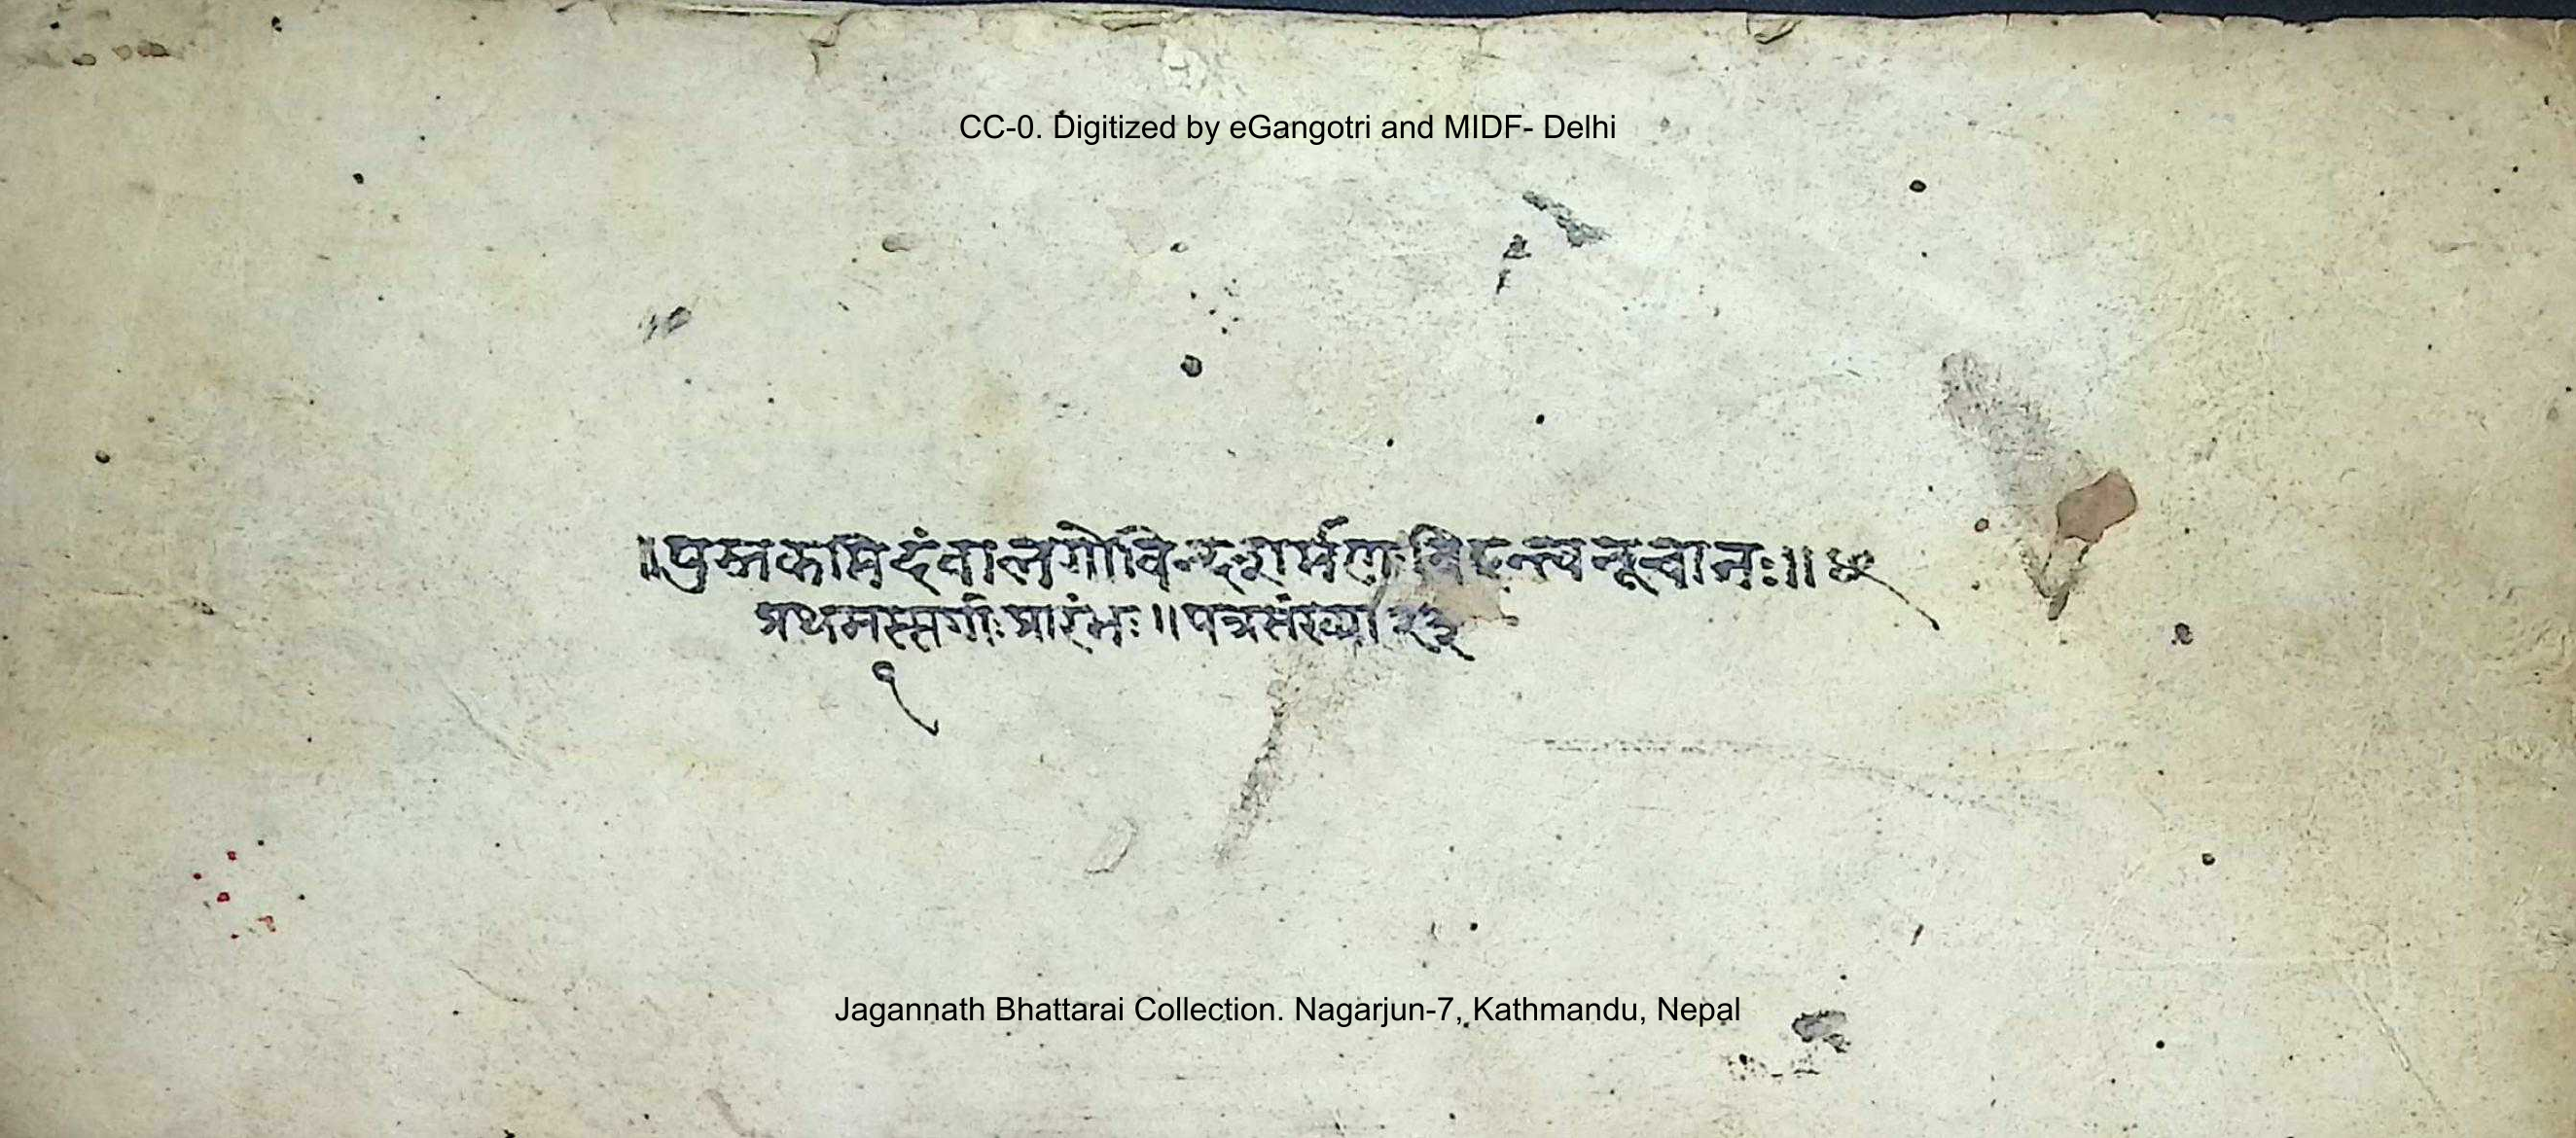 CC-0. Digitized by eGangotri and MIDF- Delhi
॥पुस्तकमिदंवालगोविन्दशर्मणः
प्रथमस्सर्गाः प्रारंभः ॥ पत्रसंख्या २३
१
Jagannath Bhattarai Collection. Nagarjun-7, Kathmandu, Nepal